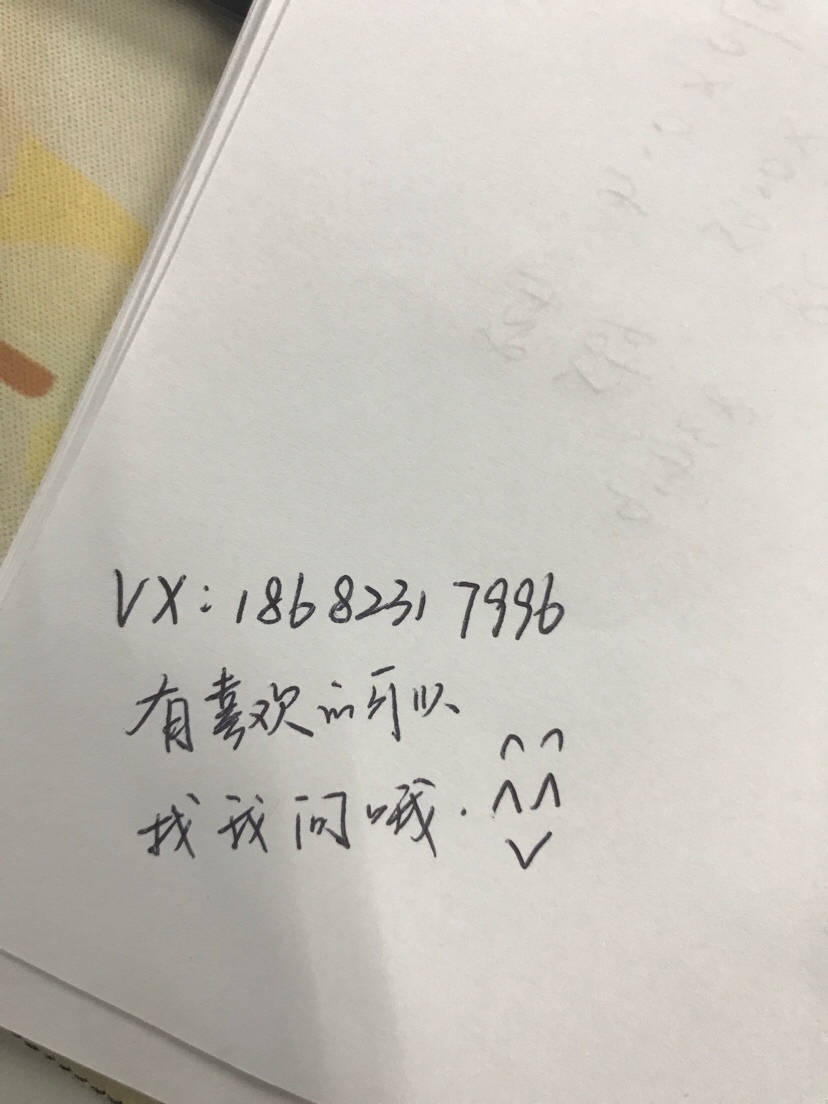 VX:18682317996
有喜欢的可以
找我问哦.